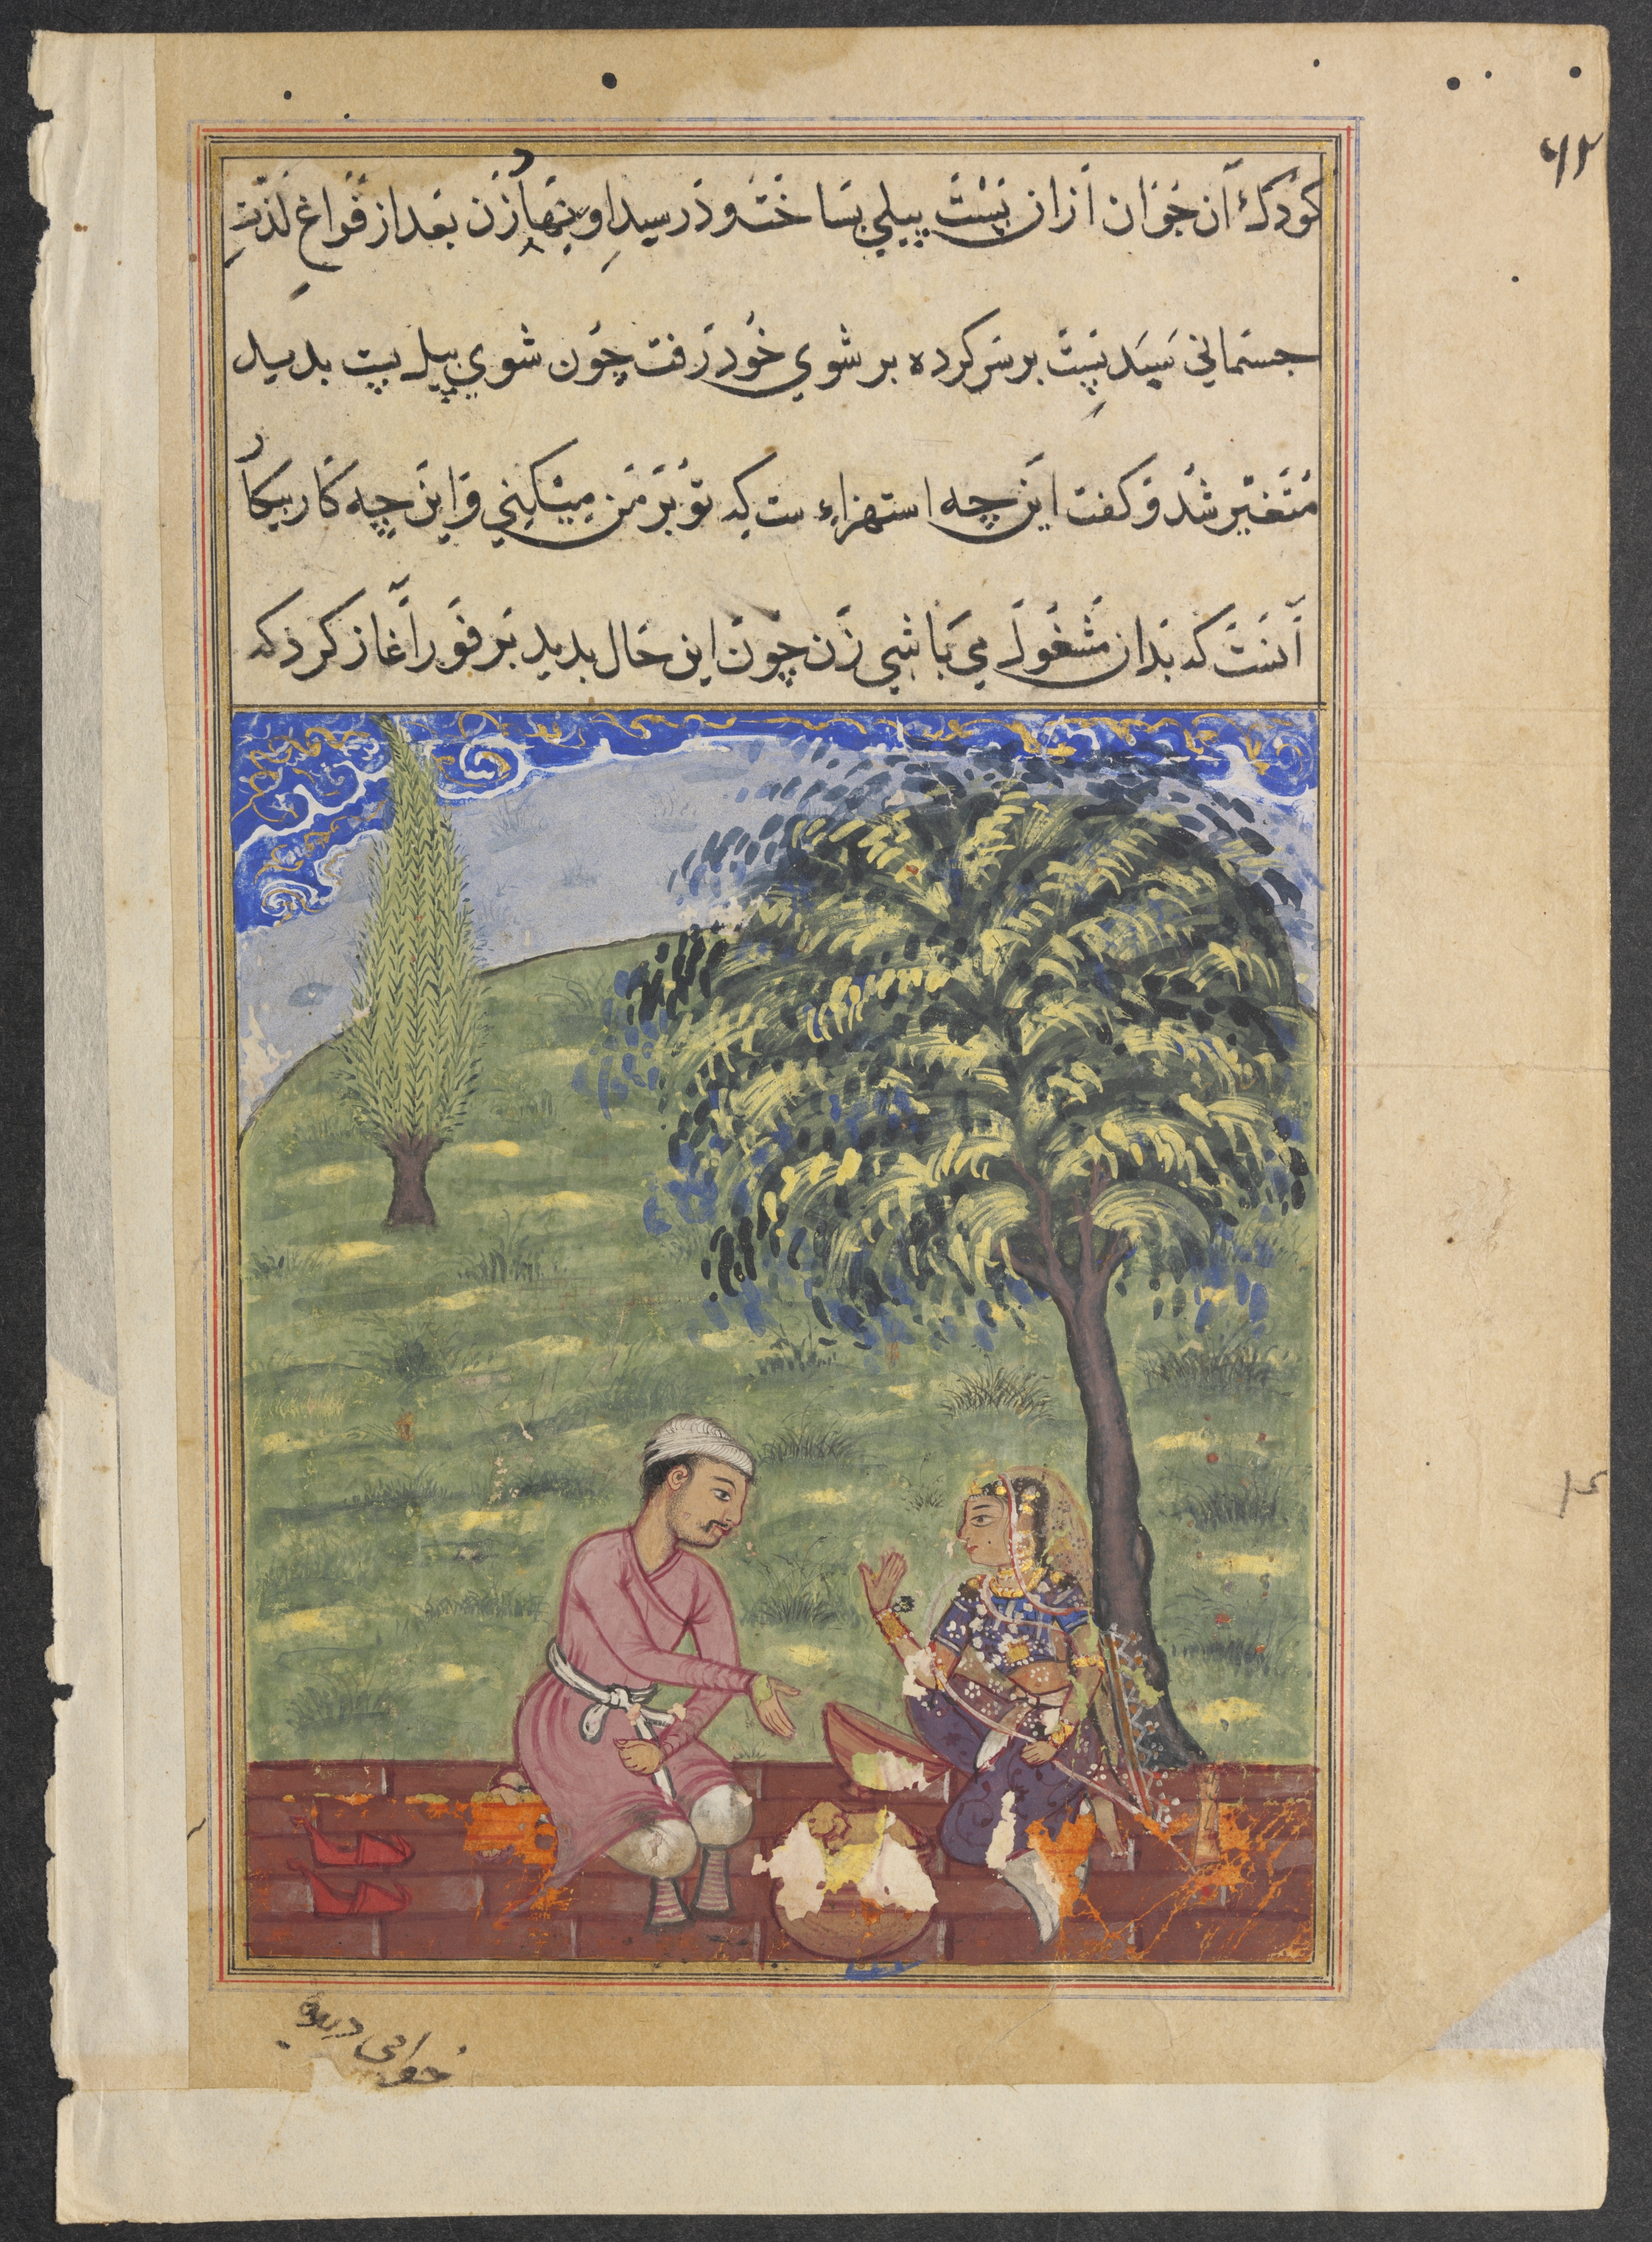 ۶۲
کودک آن جوان ازان پست پیلی بساخت و در سبد او بنهاد زن بعد از فراغ لذت
جسمانی سبد پست بر سر کرده بر شوی خود رفت چون شوی پیل پست بدید
متغیر شد و کفت این چه استهزاء ست که تو بر من میکنی و این چه کار بیکار
آنست که بدان مشغول می باشی زن چون این حال بدید بر فور آغاز کرد که
خوابی دیده